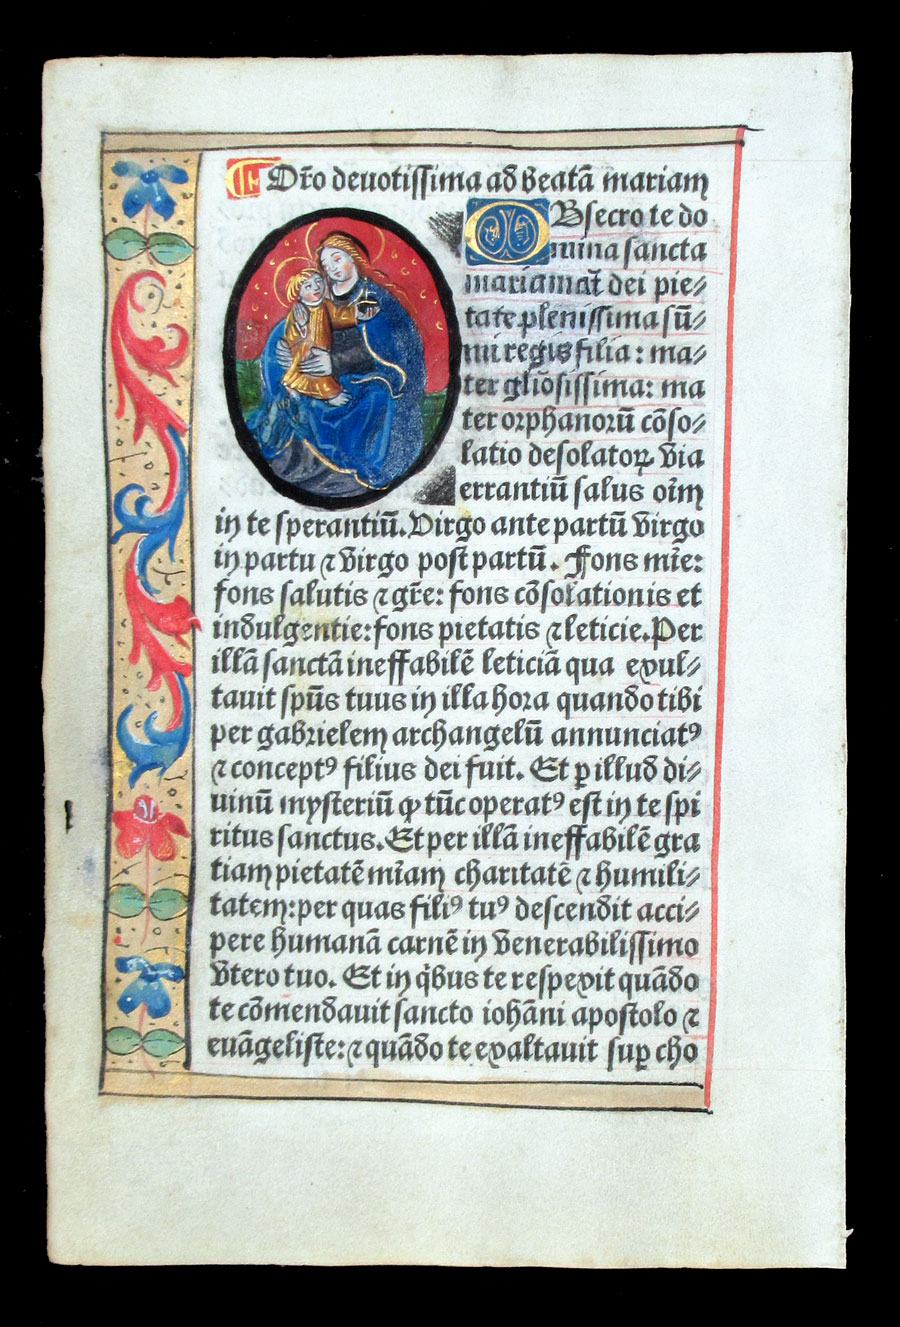 Or̄o deuotissima ad beatā mariam
OBsecro te do
mina sancta
maria mat̄ dei pie⸗
tate plenissima sū⸗
mi regis filia: ma⸗
ter gl̄iosissima: ma
ter orphanorū cōso⸗
latio desolatoꝝ via
errantiū salus oīm
in te sperantiū. Virgo ante partū virgo
in partu ⁊ virgo post partū. Fons mīe:
fons salutis ⁊ gr̄e: fons cōsolationis et
indulgentie: fons pietatis ⁊ leticie. Per
illā sanctā ineffabilē leticiā qua exul⸗
tauit sp̄us tuus in illa hora quando tibi
per gabrielem archangelū annunciatꝰ
⁊ conceptꝰ filius dei fuit. Et ꝑ illud di⸗
uinū mysteriū ꝙ tūc operatꝰ est in te spi
ritus sanctus. Et per illā ineffabilē gra
tiam pietatē mīam charitatē ⁊ humili⸗
tatem: per quas filiꝰ tuꝰ descendit acci⸗
pere humanā carnē in venerabilissimo
vtero tuo. Et in q̇bus te respexit quādo
te cōmendauit sancto iohāni apostolo ⁊
euāgeliste: ⁊ quādo te exaltauit suꝑ cho